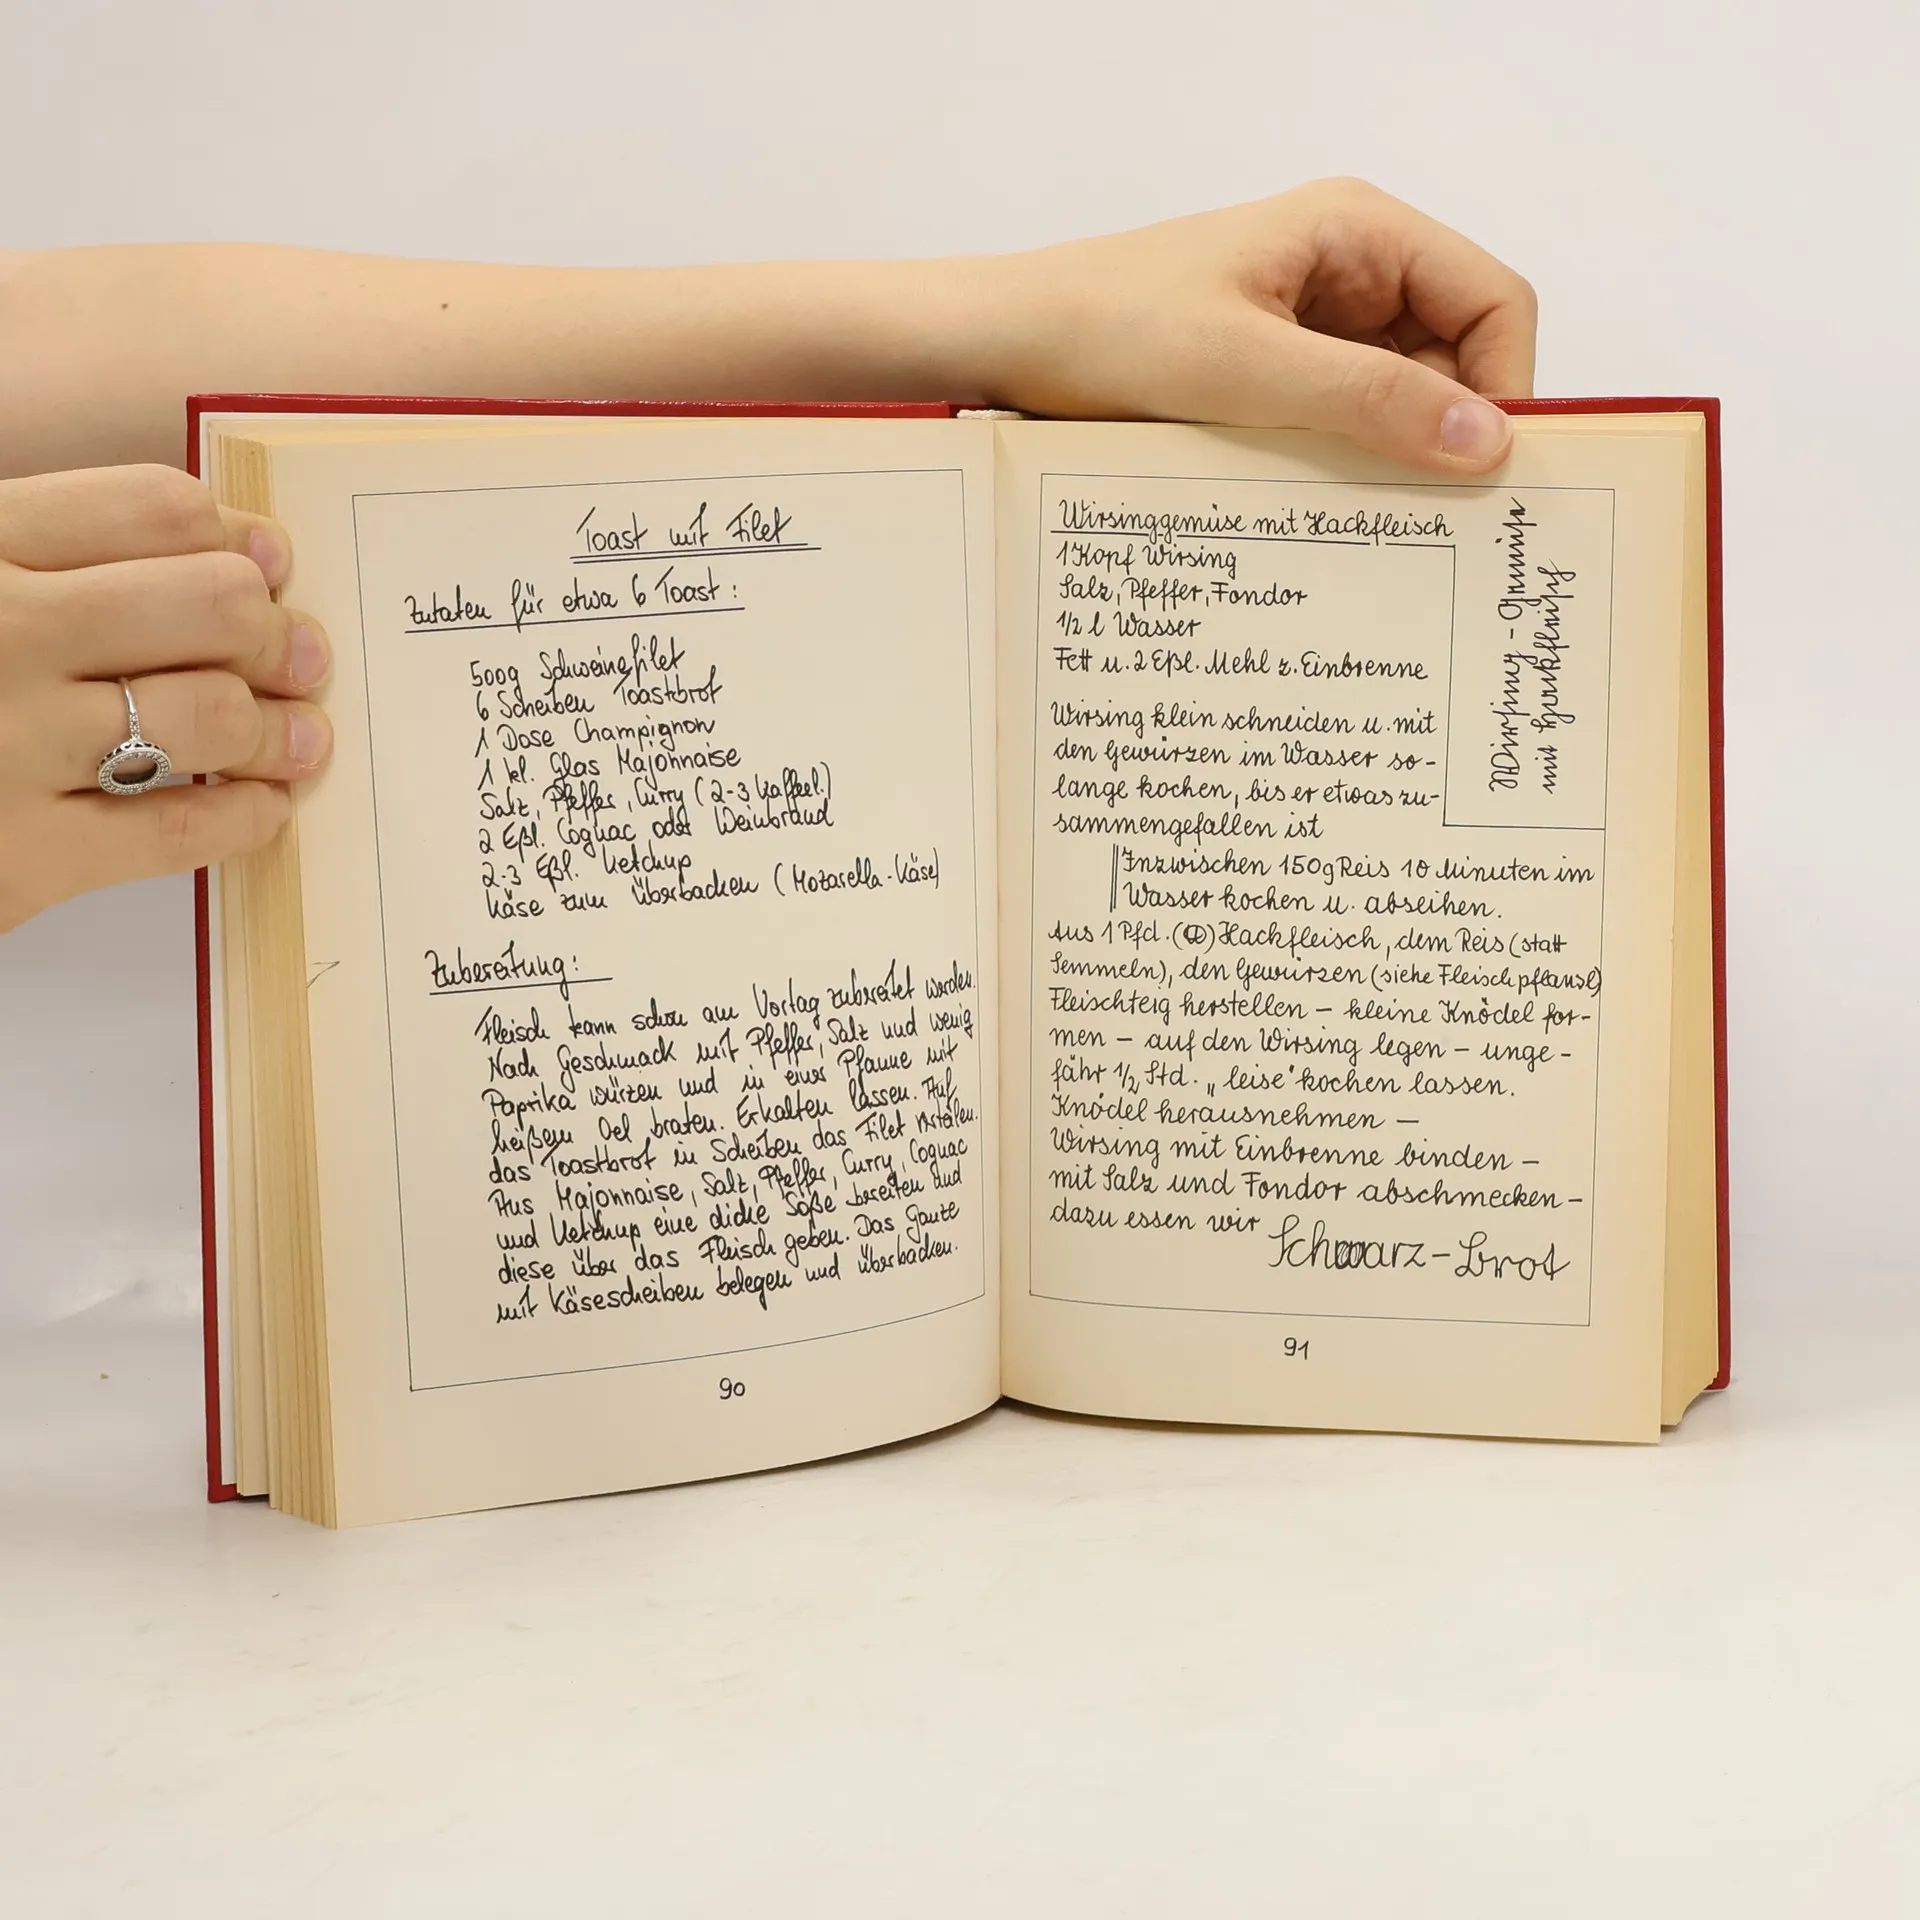 Toast mit Filet
Zutaten für etwa 6 Toast:
500g Schweinefilet
6 Scheiben Toastbrot
1 Dose Champignon
1 kl. Glas Majonnaise
Salz, Pfeffer, Curry (2-3 Kaffeel.)
2 Eßl. Cognac oder Weinbrand
2-3 Eßl. Ketchup
Käse zum Überbacken (Mozarella-Käse)
Zubereitung:
Fleisch kann schon am Vortag zubereitet werden.
Nach Geschmack mit Pfeffer, Salz und wenig
Paprika würzen und in einer Pfanne mit
heißem Oel braten. Erkalten lassen. Auf
das Toastbrot in Scheiben das Filet verteilen.
Aus Majonnaise, Salz, Pfeffer, Curry, Cognac
und Ketchup eine dicke Soße bereiten und
diese über das Fleisch geben. Das Ganze
mit Käsescheiben belegen und überbacken.
90
Wirsinggemüse mit Hackfleisch
1 Kopf Wirsing
Salz, Pfeffer, Fondor
1/2 l Wasser
Fett u. 2 Eßl. Mehl z. Einbrenne
Wirsing klein schneiden u. mit
den Gewürzen im Wasser so-
lange kochen, bis er etwas zu-
sammengefallen ist
Inzwischen 150g Reis 10 Minuten im
Wasser kochen u. abseihen.
Aus 1 Pfd. Hackfleisch, dem Reis (statt
Semmeln), den Gewürzen (siehe Fleischpflanzl)
Fleischteig herstellen – kleine Knödel for-
men – auf den Wirsing legen – unge-
fähr 1/2 Std. „leise" kochen lassen.
Knödel herausnehmen –
Wirsing mit Einbrenne binden –
mit Salz und Fondor abschmecken –
dazu essen wir Schwarz-Brot
Wirsing-Gemüse
mit Hackfleisch
91